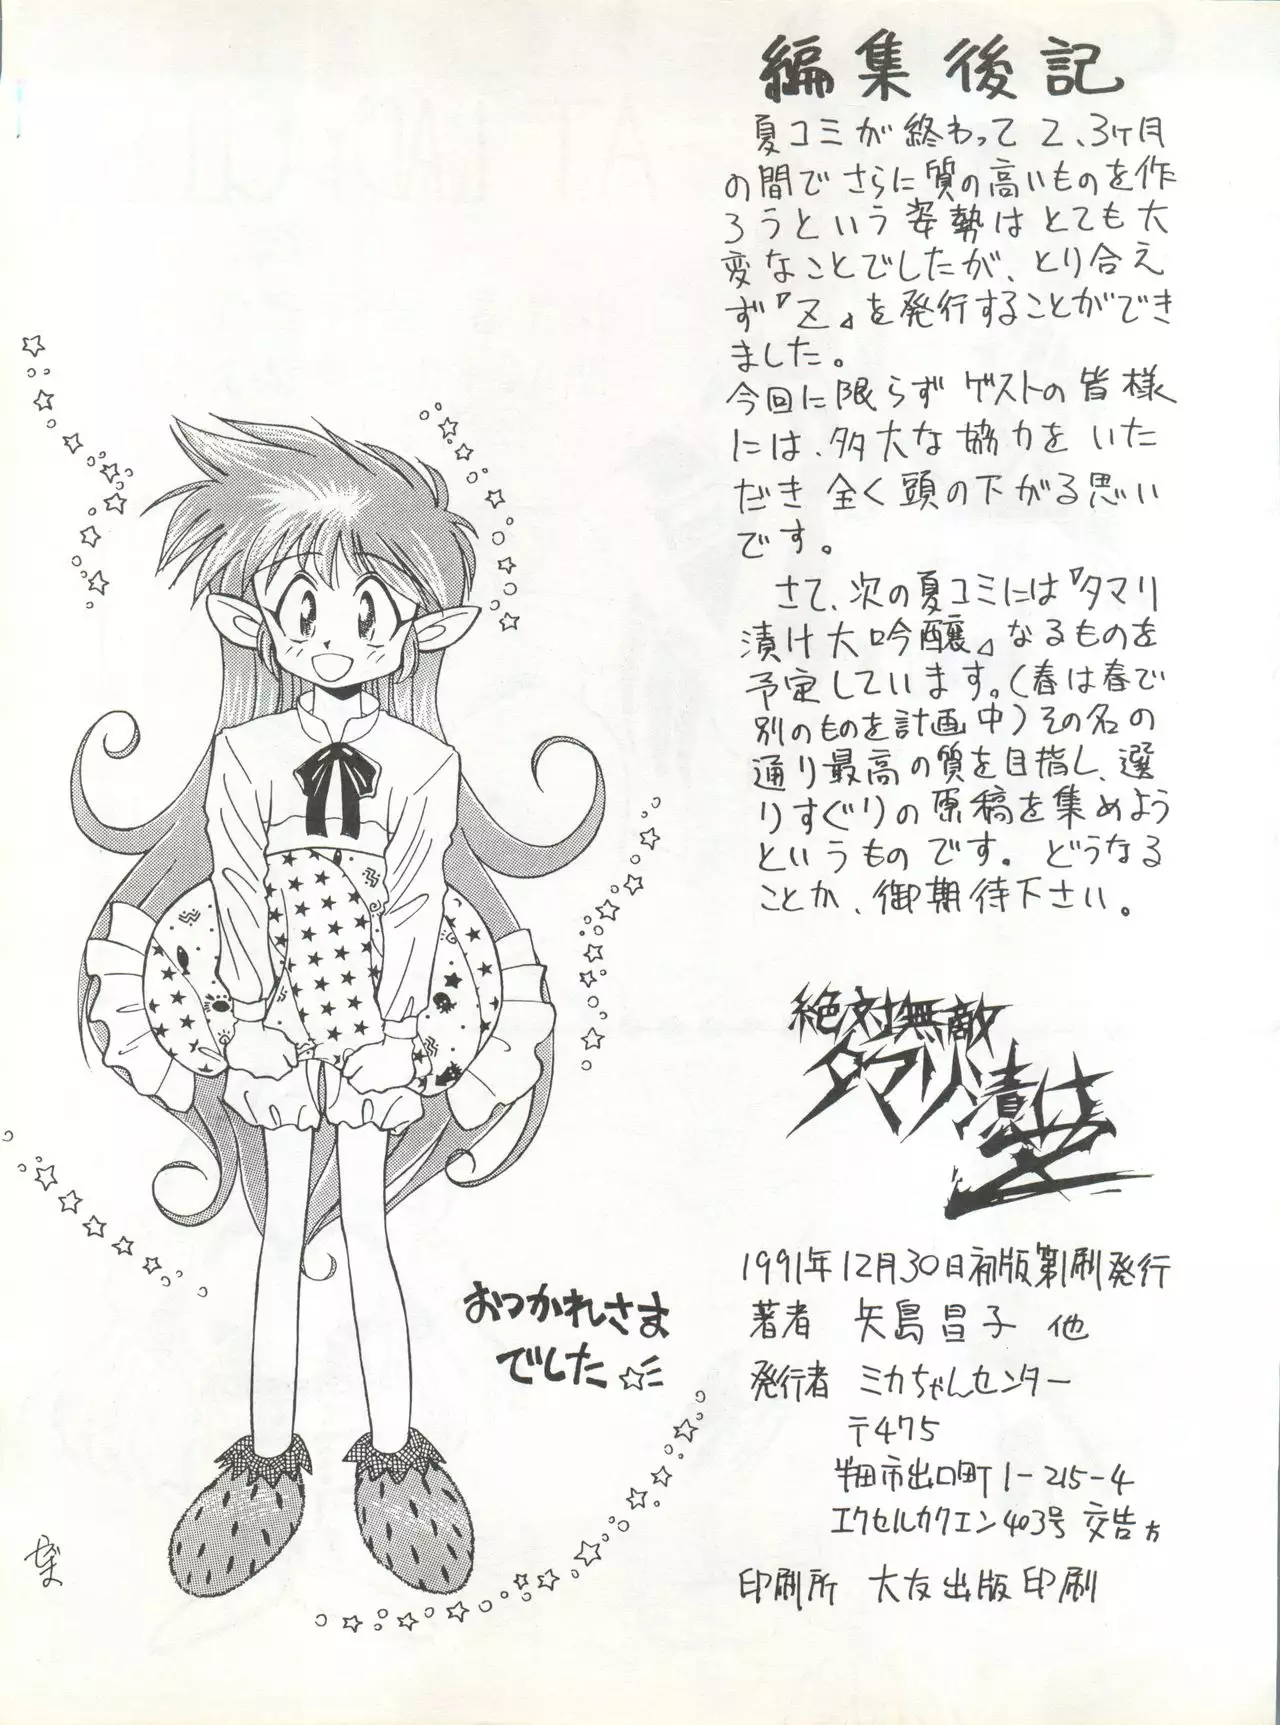 編集後記
夏コミが終わって2、3ヶ月
の間でさらに質の高いものを作
ろうという姿勢はとても大
変なことでしたが、とり合え
ず『Z』を発行することができ
ました。
今回に限らずゲストの皆様
には、多大な協力をいた
だき全く頭の下がる思い
です。
さて、次の夏コミには『タマリ
漬け大吟醸』なるものを
予定しています。(春は春で
別のものを計画中)その名の
通り最高の質を目指し、選
りすぐりの原稿を集めよう
というものです。どうなる
ことか、御期待下さい。
絶対無敵
タマリ漬け
Z
1991年12月30日初版第1刷発行
著者 矢島昌子 他
発行者 ミカちゃんセンター
〒475
半田市出口町1-215-4
エクセルカクエン403号 交告方
印刷所 大友出版印刷
おつかれさま
でした